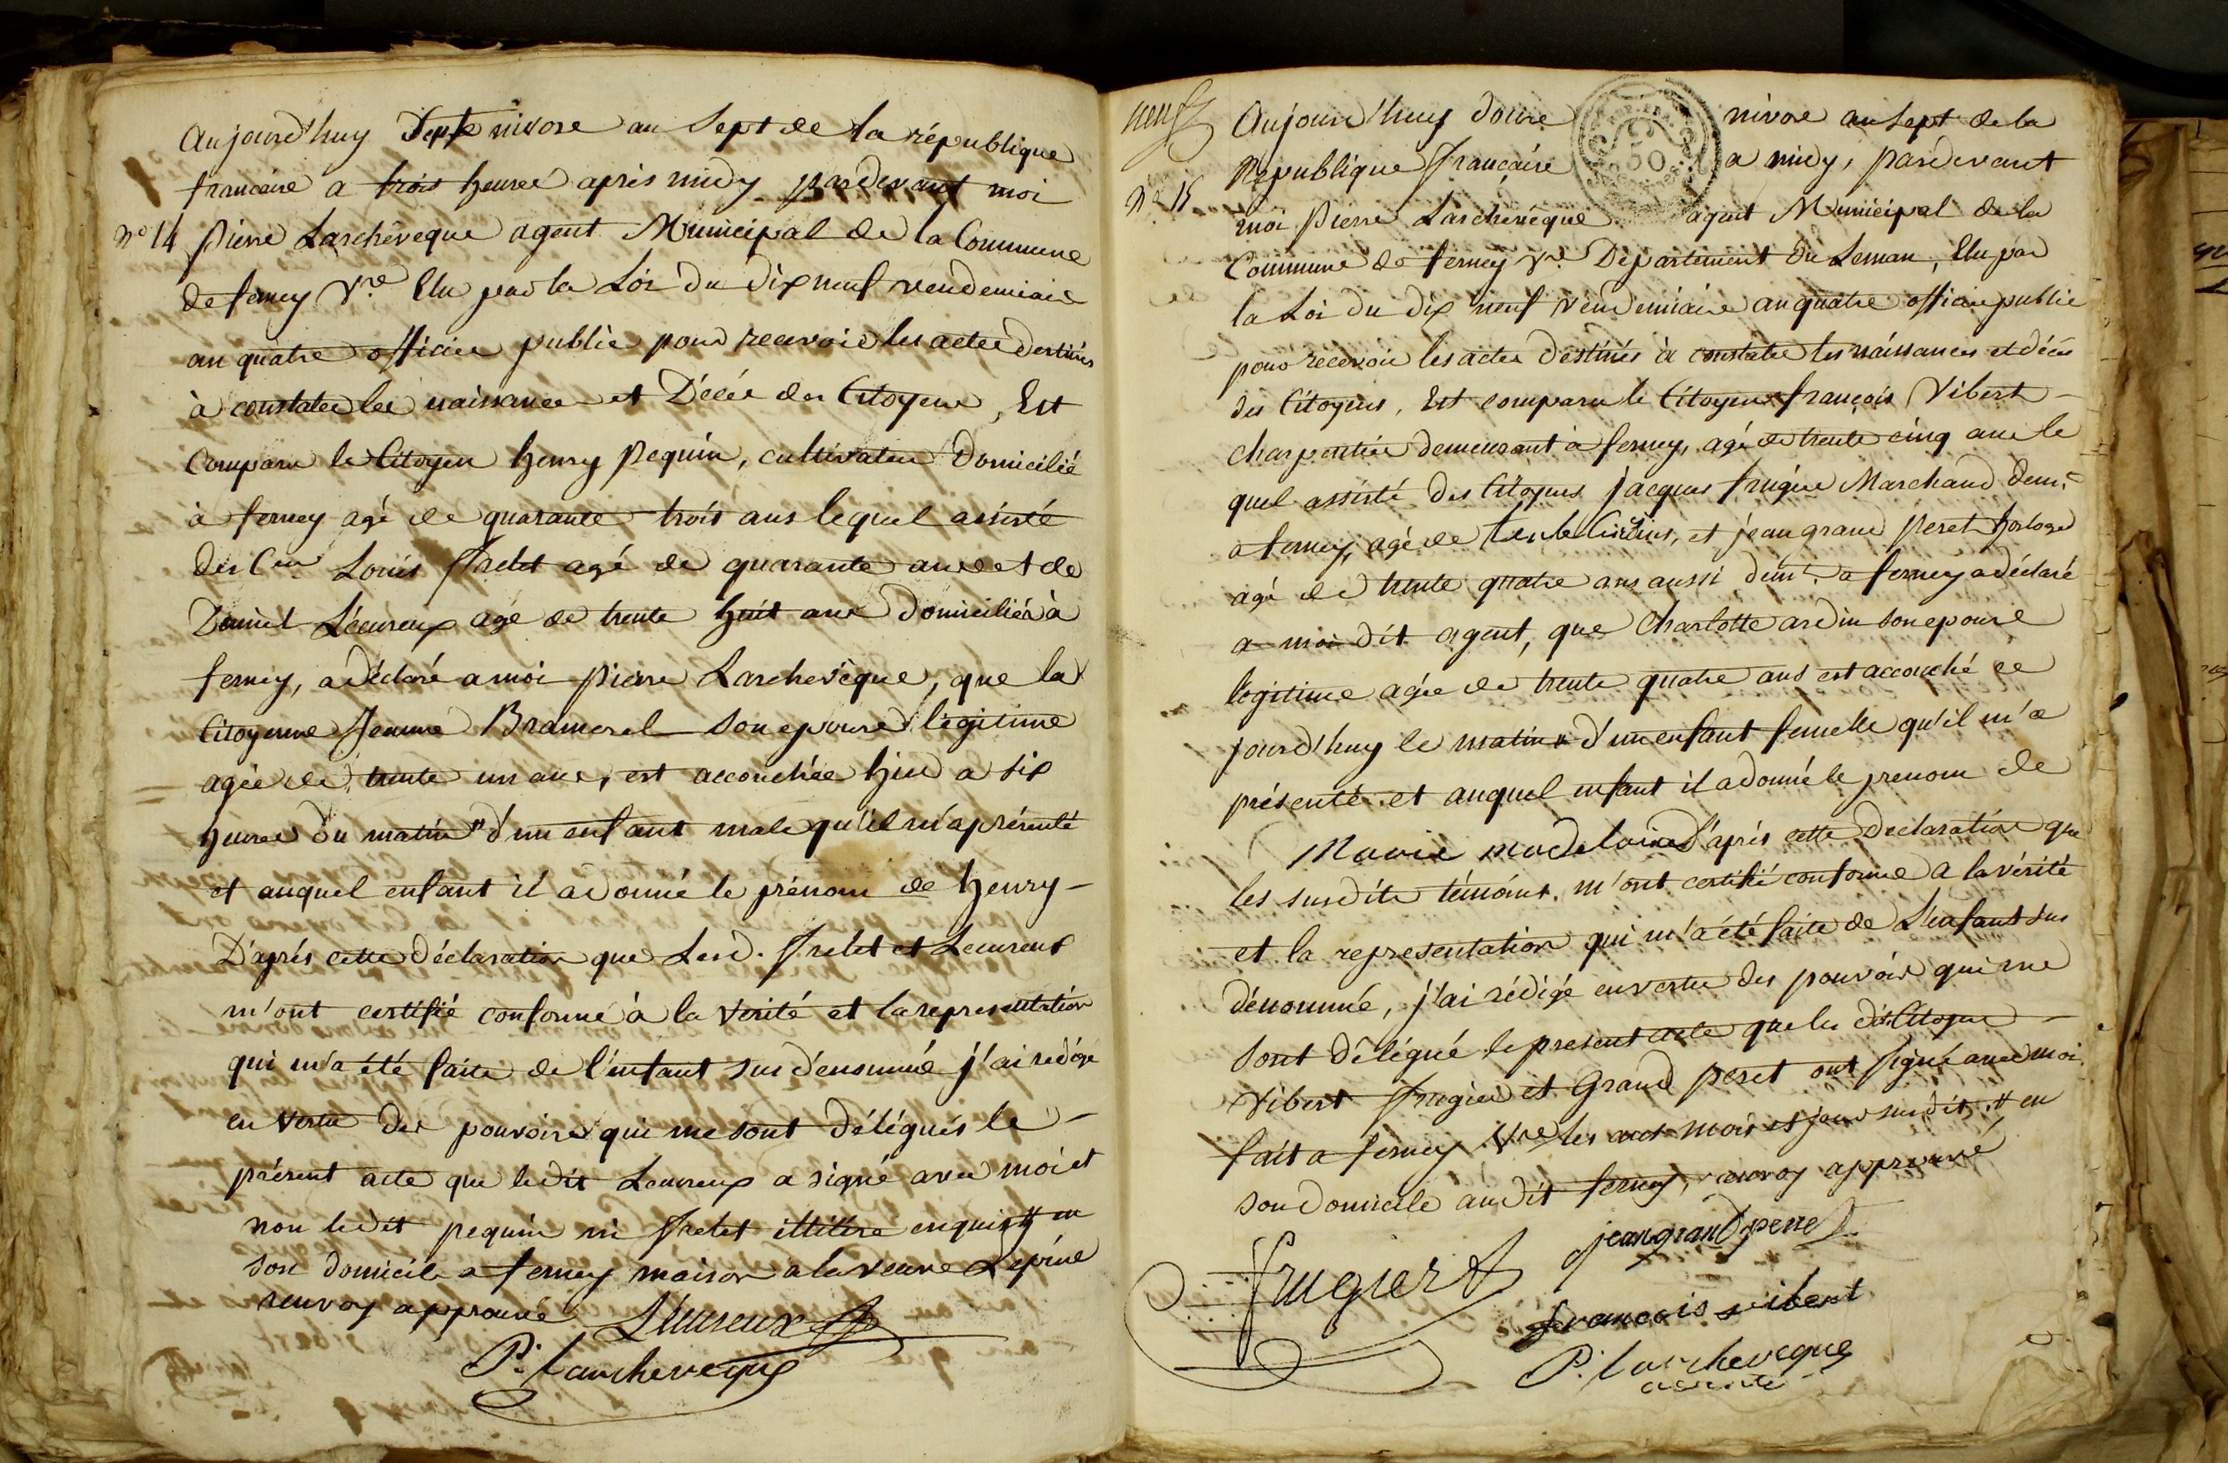 Aujourd'huy Sept nivose an Sept de la république
francaise a trois heures après midy pardevant moi
N° 14 Pierre Larchevêque agent Municipal de la Commune
de ferney Vre Elu par la Loi du dix neuf vendemiaire
an quatre officier public pour recevoir les actes destinés
à constater les naissances et Décés des Citoyens, Est
Comparu le Citoyen henry pequin, cultivateur Domicilié
à ferney agé de quarante trois ans lequel assisté
des Cens Louis fretet agé de quarante ans et de
Daniel Lheureux agé de trente huit ans domiciliés à
ferney, a déclaré a moi pierre Larchevêque, que la
Citoyenne Jeanne Bramerel son epouse légitime
agée de trente un ans, est accouchée hier a six
heures du matin # d'un enfant male qu'il m'a présenté
et auquel enfant il a donné le prénom de henry –
D'après cette déclaration que Lesd. fretet et Leureux
m'ont certifié conforme à la vérité et la representation
qui m'a été faite de l'enfant sus dénommé j'ai redigé
en vertu des pouvoirs qui me sont délégués le –
présent acte que ledit Leureux a signé avec moi et
non ledit pequin ni fretet illitéré enquis # en
son domicile a ferney maison a la veuve Lépine
renvoy approuvé Lheureux
P. Larcheveque
neuf
Aujourd'huy douze nivose an sept de la
Republique française a midy, pardevant
N° 15
moi Pierre Larcheveque agent Municipal de la
Commune de ferney Vre Département du Leman, Elu par
la Loi du dix neuf vendemiaire an quatre officier public
pour recevoir les actes destinés à constater les naissances et décés
des Citoyens, Est comparu le Citoyen françois Vibert –
charpentier demeurant à ferney, agé de trente cinq ans le
quel assisté des Citoyens jacques frugier Marchand dem.t
a ferney, agé de et jean grand Peret horloger
agé de trente quatre ans aussi dem.t a ferney a déclaré
a moi dit agent, que Charlotte ardin son epouse
légitime agée de trente quatre ans est accouché ce
jourd'huy le matin # d'un enfant femelle qu'il m'a
présenté et auquel enfant il a donné le prenom de
Marie madelaine D'après cette declaration que
les susdits témoins m'ont certifié conforme a la vérité
et la representation qui m'a été faite de L'enfant sus
dénommé, j'ai rédigé en vertu des pouvoirs qui me
sont délégué le present acte que les dits Citoyens –
Vibert frugier et Grand peret ont signé avec moi
fait a ferney Vre les an mois et jour susdit, # en
son domicile au dit ferney, renvoy approuvé
jean grand perret
frugier
francois vibert
P. Larcheveque